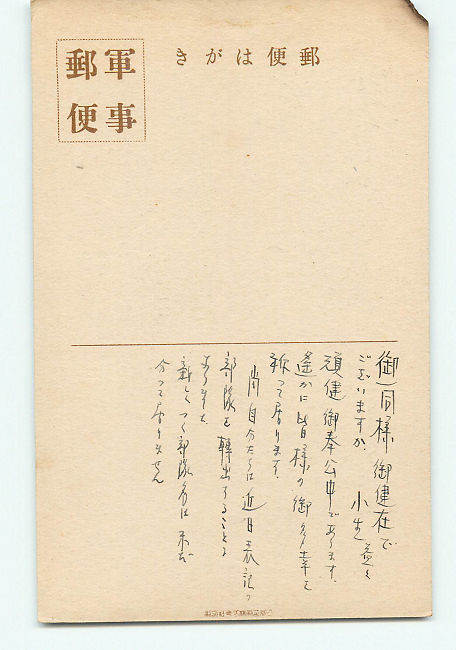 郵便はがき
軍事
郵便
御一同様御健在で
ございますか、小生益々
頑健御奉公中であります。
遥かに皆様の御多幸を
祈って居ります。
尚自分たちは近日表記の
部隊を轉出することと
新しくつく部隊名は未だ
分って居りません